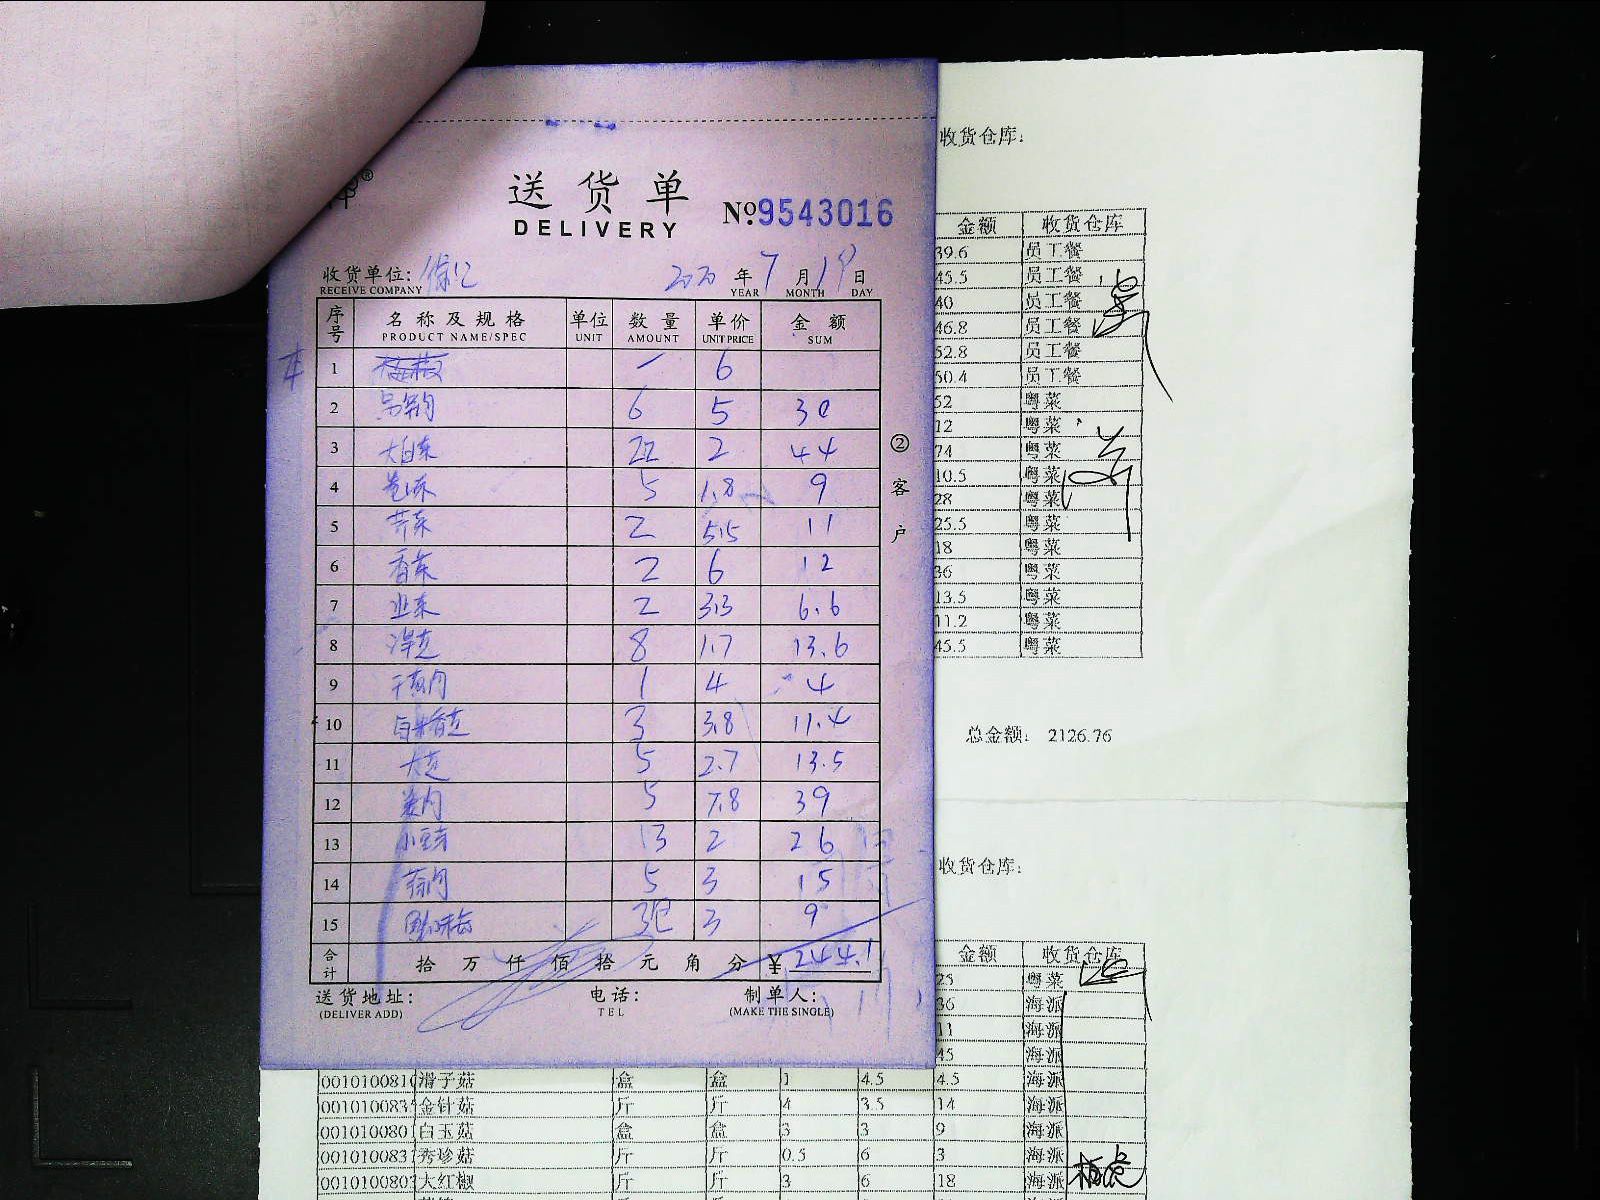 送货单
DELIVERY
№9543016
收货单位:
RECEIVE COMPANY
2020 年 7 月 19 日
YEAR MONTH DAY
序号 名称及规格 单位 数量 单价 金额
PRODUCT NAME/SPEC UNIT AMOUNT UNIT PRICE SUM
1 6
2 6 5 30
3 大白菜 22 2 44
4 5 1.8 9
5 芹菜 2 5.5 11
6 香菜 2 6 12
7 韭菜 2 3.3 6.6
8 8 1.7 13.6
9 1 4 4
10 3 3.8 11.4
11 5 2.7 13.5
12 5 7.8 39
13 小豆芽 13 2 26
14 5 3 15
15 3包 3 9
合计 拾 万 仟 佰 拾 元 角 分 ¥ 244.1
送货地址: 电话: 制单人:
(DELIVER ADD) TEL (MAKE THE SINGLE)
② 客户
收货仓库:
金额 收货仓库
39.6 员工餐
45.5 员工餐
40 员工餐
46.8 员工餐
52.8 员工餐
50.4 员工餐
52 粤菜
12 粤菜
74 粤菜
10.5 粤菜
28 粤菜
25.5 粤菜
18 粤菜
36 粤菜
13.5 粤菜
11.2 粤菜
45.5 粤菜
总金额: 2126.76
收货仓库:
金额 收货仓库
25 粤菜
36 海派
11 海派
45 海派
001010081 滑子菇 盒 盒 1 4.5 4.5 海派
001010083 金针菇 斤 斤 4 3.5 14 海派
001010080 白玉菇 盒 盒 3 3 9 海派
001010083 秀珍菇 斤 斤 0.5 6 3 海派
001010080 大红椒 斤 斤 3 6 18 海派